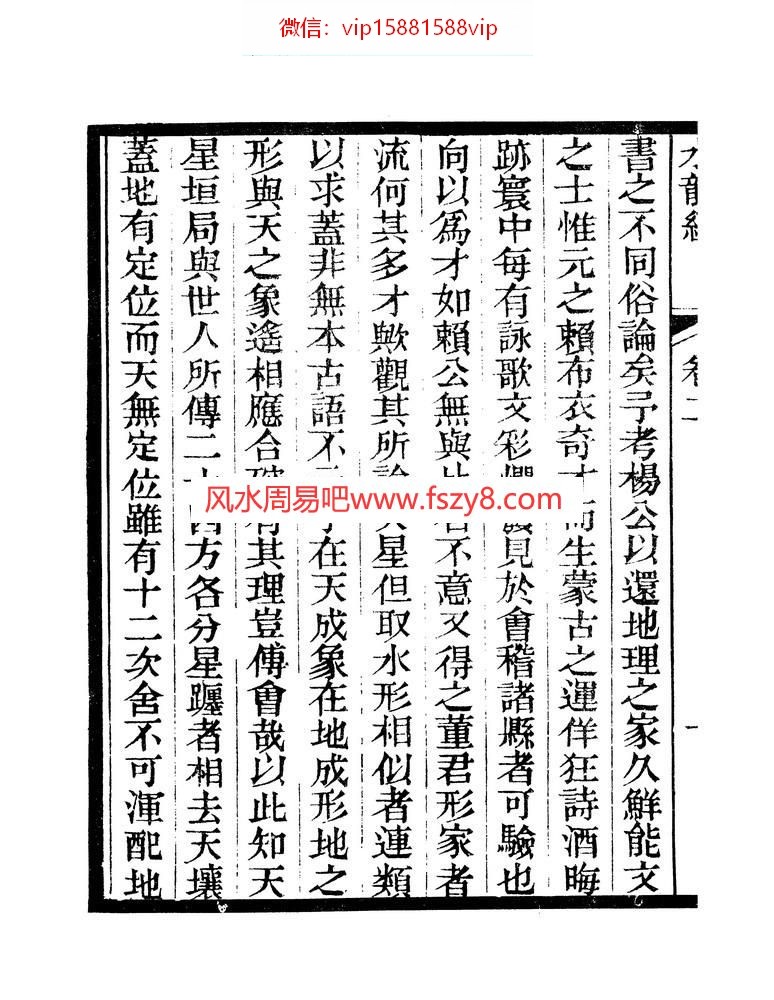 微信：vip15881588vip
水龍經 卷二 一
書之不同俗論矣予考楊公以還地理之家久鮮能文
之士惟元之賴布衣奇 而生蒙古之運佯狂詩酒晦
跡寰中每有詠歌文彩 見於會稽諸縣者可驗也
向以爲才如賴公無與 不意又得之董君形家者
流何其多才歟觀其所論 星但取水形相似者連類
以求蓋非無本古語不 在天成象在地成形地之
形與天之象遙相應合 有其理豈傅會哉以此知天
星垣局與世人所傳二十四方各分星躔者相去天壤
蓋地有定位而天無定位雖有十二次舍不可渾配地
风水周易吧www.fszy8.com